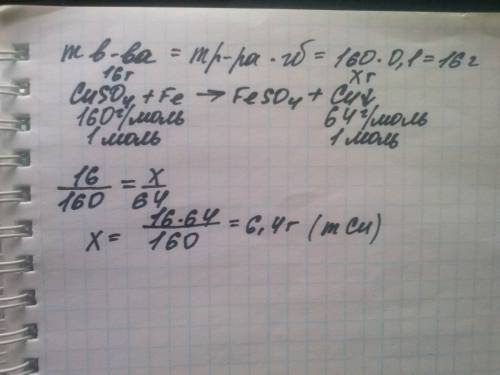 m в-ва = m р-ра · ω = 160 · 0,1 = 16 г
16г xг
CuSO₄ + Fe → FeSO₄ + Cu↓
160г/моль 64г/моль
1 моль 1 моль
16/160 = x/64
x = 16·64/160 = 6,4г (m Cu)